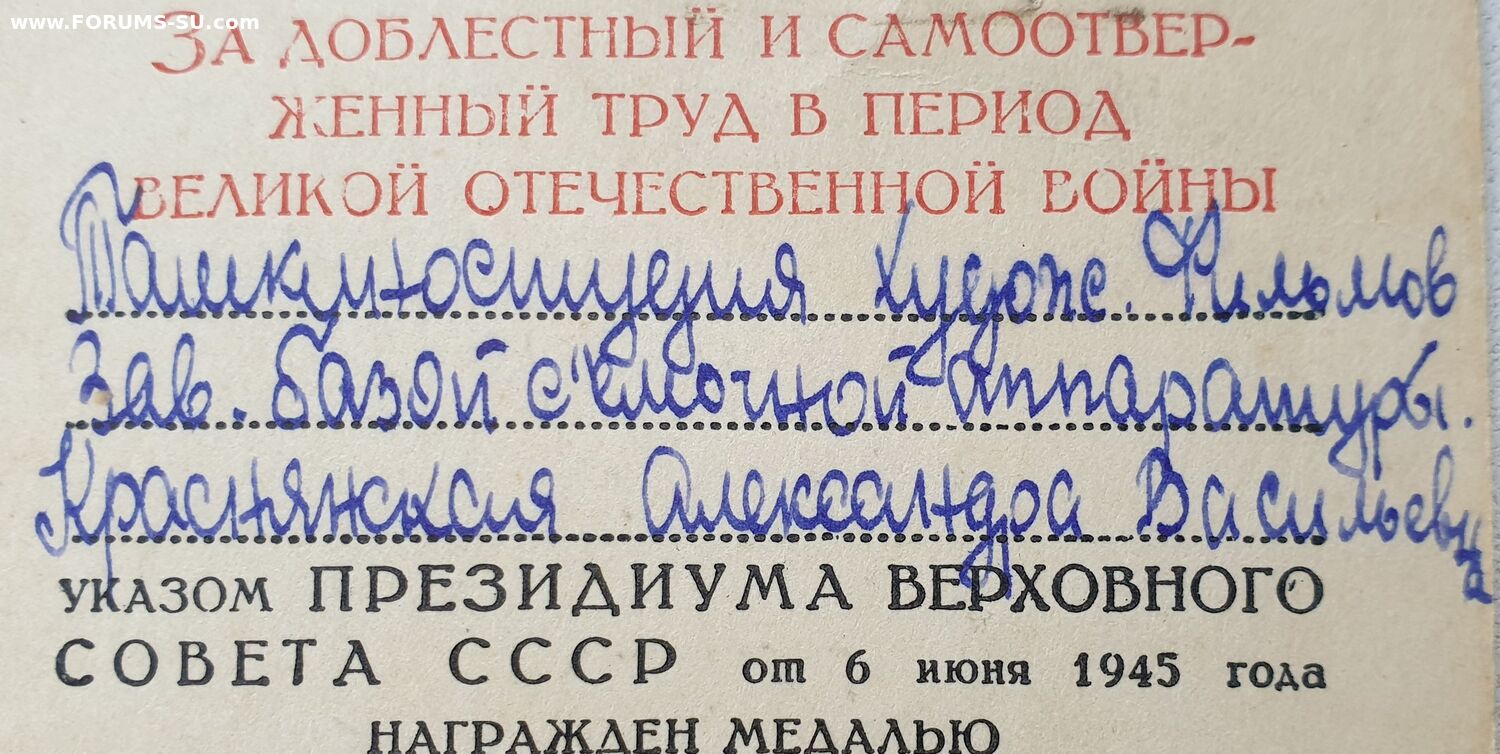 www.FORUMS-SU.com
ЗА ДОБЛЕСТНЫЙ И САМООТВЕР-
ЖЕННЫЙ ТРУД В ПЕРИОД
ВЕЛИКОЙ ОТЕЧЕСТВЕННОЙ ВОЙНЫ
Ташкиностудия худож. Фильмов
Зав. базой с'емочной аппаратуры.
Краснянская Александра Васильевна
УКАЗОМ ПРЕЗИДИУМА ВЕРХОВНОГО
СОВЕТА СССР от 6 июня 1945 года
НАГРАЖДЕН МЕДАЛЬЮ